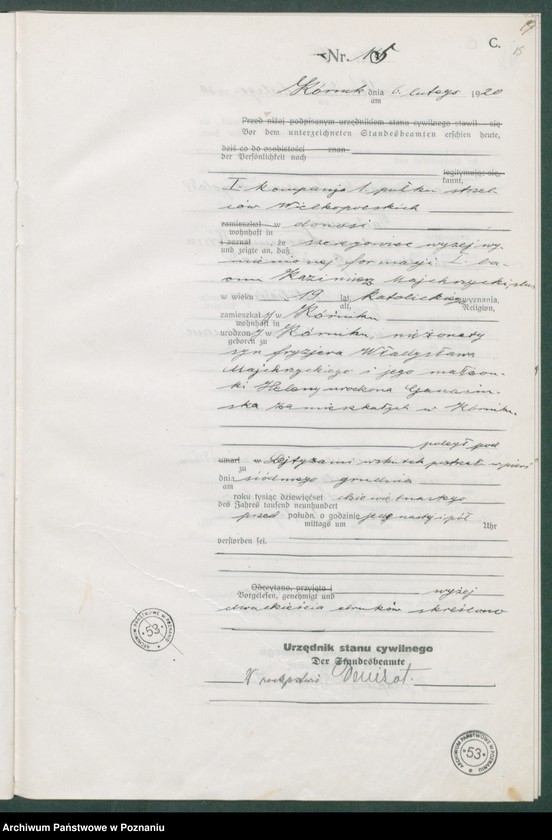 C.
15
Nr. 15
Kórnik dnia 6. lutego 1920
am
Przed niżej podpisanym urzędnikiem stanu cywilnego stawił się
Vor dem unterzeichneten Standesbeamten erschien heute,
dziś co do osobistości znan
der Persönlichkeit nach
legitymując się,
kannt,
I. kompanja 1 pułku strzel-
ców Wielkopolskich
zamieszkał w donosi
wohnhaft in
i zeznał że szeregowiec wyżej wy-
und zeigte an, daß
mienionej formacji I. ba-
onu Kazimierz Majchrzycki,
w wieku 19 lat, katolickiego wyznania,
alt, Religion,
zamieszkały w Kórniku
wohnhaft in
urodzony w Kórniku, nieżonaty
geboren zu
syn fryzjera Władysława
Majchrzyckiego i jego małżon-
ki Heleny urodzona
ska zamieszkałych w Kórniku.
poległ pod
umarł w wskutek postrzału w pierś
zu
dnia siódmego grudnia
am
roku tysiąc dziewięćset dziewiętnastego
des Jahres tausend neunhundert
przed połudn. o godzinie jedenastej i pół
mittags um Uhr
verstorben sei.
Odczytano, przyjęto i wyżej
Vorgelesen, genehmigt und
dwadzieścia druków skreślono
Urzędnik stanu cywilnego
Der Standesbeamte
W zastępstwie
ARCHIWUM PAŃSTWOWE W POZNANIU
53
ARCHIWUM PAŃSTWOWE W POZNANIU
53
Archiwum Państwowe w Poznaniu